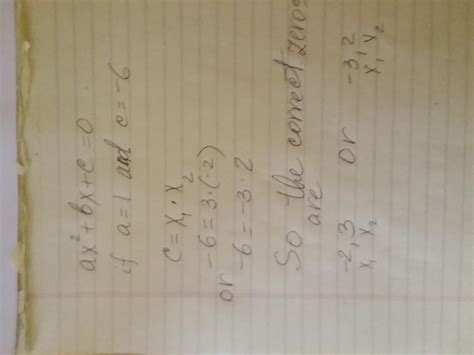 ax²+bx+c=0
if a=1 and c=-6
c=x₁·x₂
-6=3·(-2)
or -6=-3·2
So the correct zeros
are
-2,3 or -3,2
x₁ x₂ x₁ x₂